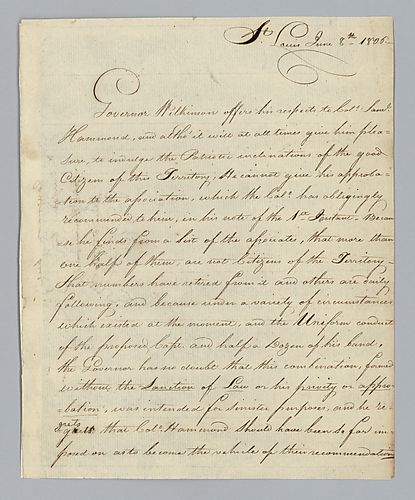 St Louis June 8th 1806
Governor Wilkinson offers his respects to Colo. Saml.
Hammond, and altho' it will at all times give him plea-
sure, to indulge the Patriotic inclinations of the good
Citizens of this Territory, He cannot give his approba-
tion to the association, which the Colo. has obligingly
recommended to him, in his note of the 1st Instant - Becau-
se he finds from a list of the associates, that more than
one half of them, are not Citizens of the Territory -
That numbers have retired from it and others are daily
following, and because under a variety of circumstances
which existed at the moment, and the Uniform conduct
of the proposed Capt. and half a Dozen of his band,
the Governor has no doubt that this combination, formed
without the Sanction of Law or his privity or appro-
bation, was intended for Sinister purposes, and he re-
grets that Colo. Hammond should have been so far im-
posed on as to become the vehicle of their recommendation